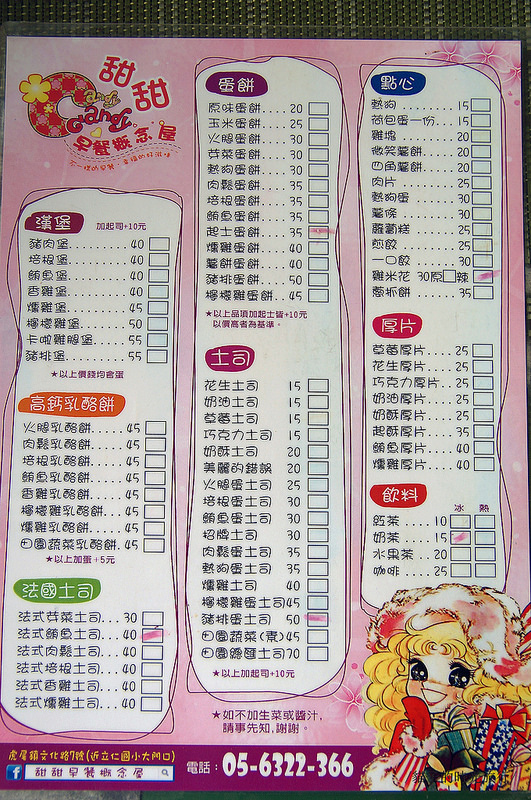 甜甜
Candy
Candy
早餐概念屋
漢堡 加起司+10元
豬肉堡 40
培根堡 40
鮪魚堡 40
香雞堡 40
燻雞堡 40
檸檬雞堡 50
卡啦雞腿堡 55
豬排堡 55
★以上價錢均含蛋
高鈣乳酪餅
火腿乳酪餅 45
肉鬆乳酪餅 45
培根乳酪餅 45
鮪魚乳酪餅 45
香雞乳酪餅 45
檸檬雞乳酪餅 45
燻雞乳酪餅 45
田園蔬菜乳酪餅 45
★以上加蛋+5元
法國土司
法式芽菜土司 30
法式鮪魚土司 40
法式肉鬆土司 40
法式培根土司 40
法式香雞土司 40
法式燻雞土司 40
蛋餅
原味蛋餅 20
玉米蛋餅 25
火腿蛋餅 30
芽菜蛋餅 30
熱狗蛋餅 35
肉鬆蛋餅 35
培根蛋餅 35
鮪魚蛋餅 35
起士蛋餅 35
燻雞蛋餅 40
薯餅蛋餅 40
豬排蛋餅 50
檸檬雞蛋餅 45
★以上品項加起士皆+10元
以價高者為基準。
土司
花生土司 15
奶油土司 15
草莓土司 15
巧克力土司 15
奶酥土司 20
美麗的錯誤 20
火腿蛋土司 25
培根蛋土司 30
鮪魚蛋土司 30
招牌土司 30
肉鬆蛋土司 35
熱狗蛋土司 35
燻雞土司 40
檸檬雞蛋土司 45
豬排蛋土司 50
田園蔬菜(素) 45
田園總匯土司 70
★以上加起司+10元
★如不加生菜或醬汁,
請事先知,謝謝。
點心
熱狗 15
荷包蛋一份 15
雞塊 20
微笑薯餅 20
四角薯餅 20
肉片 25
熱狗蛋 30
薯條 30
蘿蔔糕 25
煎餃 25
一口餃 30
雞米花 30原 辣
蔥抓餅 35
厚片
草莓厚片 25
花生厚片 25
巧克力厚片 25
奶油厚片 25
奶酥厚片 25
起酥厚片 35
鮪魚厚片 40
燻雞厚片 40
飲料
冰 熱
紅茶 10
奶茶 15
水果茶 20
咖啡 25
虎尾鎮文化路7號(近立仁國小大門口)
f 甜甜早餐概念屋
電話:05-6322-366